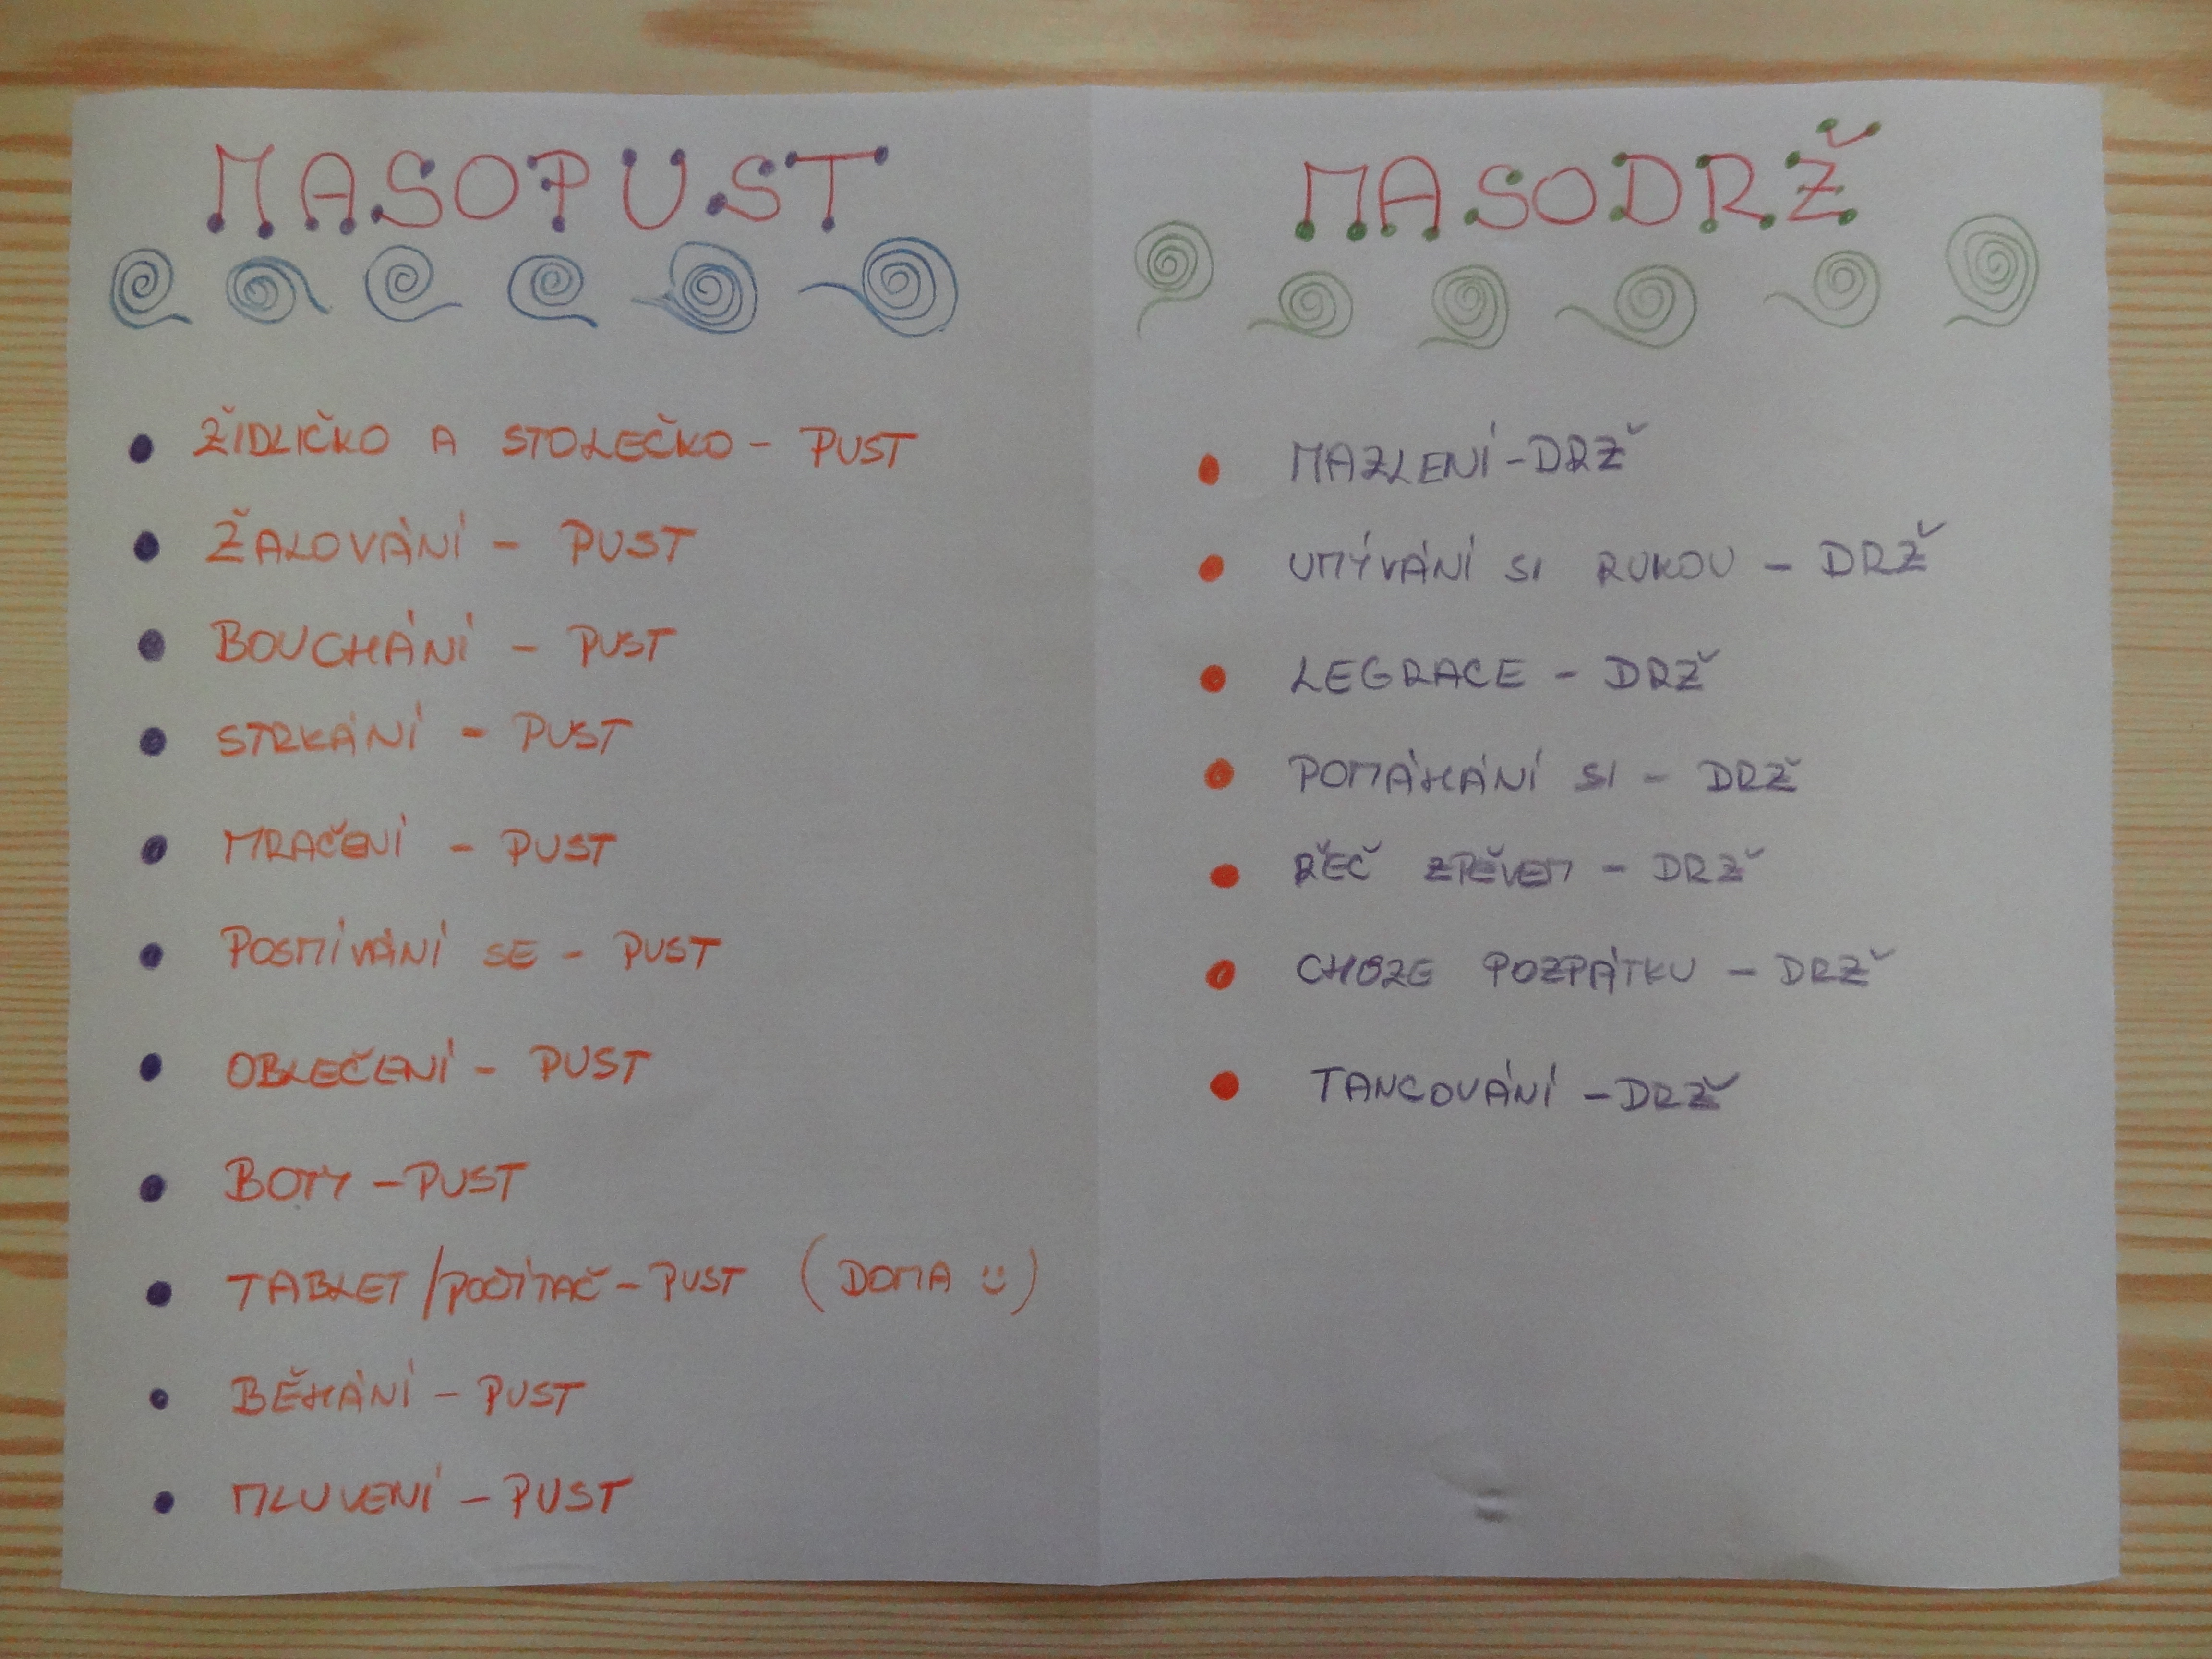 MASOPUST
ŽIDLIČKO A STOLEČKO - PUST
ŽALOVÁNÍ - PUST
BOUCHÁNÍ - PUST
STRKÁNÍ - PUST
MRAČENÍ - PUST
POSMÍVÁNÍ SE - PUST
OBLEČENÍ - PUST
BOTY - PUST
TABLET/POČÍTAČ - PUST (DOMA ☺)
BĚHÁNÍ - PUST
MLUVENÍ - PUST
MASODRŽ
MAZLENÍ - DRŽ
UMÝVÁNÍ SI RUKOU - DRŽ
LEGRACE - DRŽ
POMÁHÁNÍ SI - DRŽ
ŘEČ ZPĚVEM - DRŽ
CHŮZE POZPÁTKU - DRŽ
TANCOVÁNÍ - DRŽ